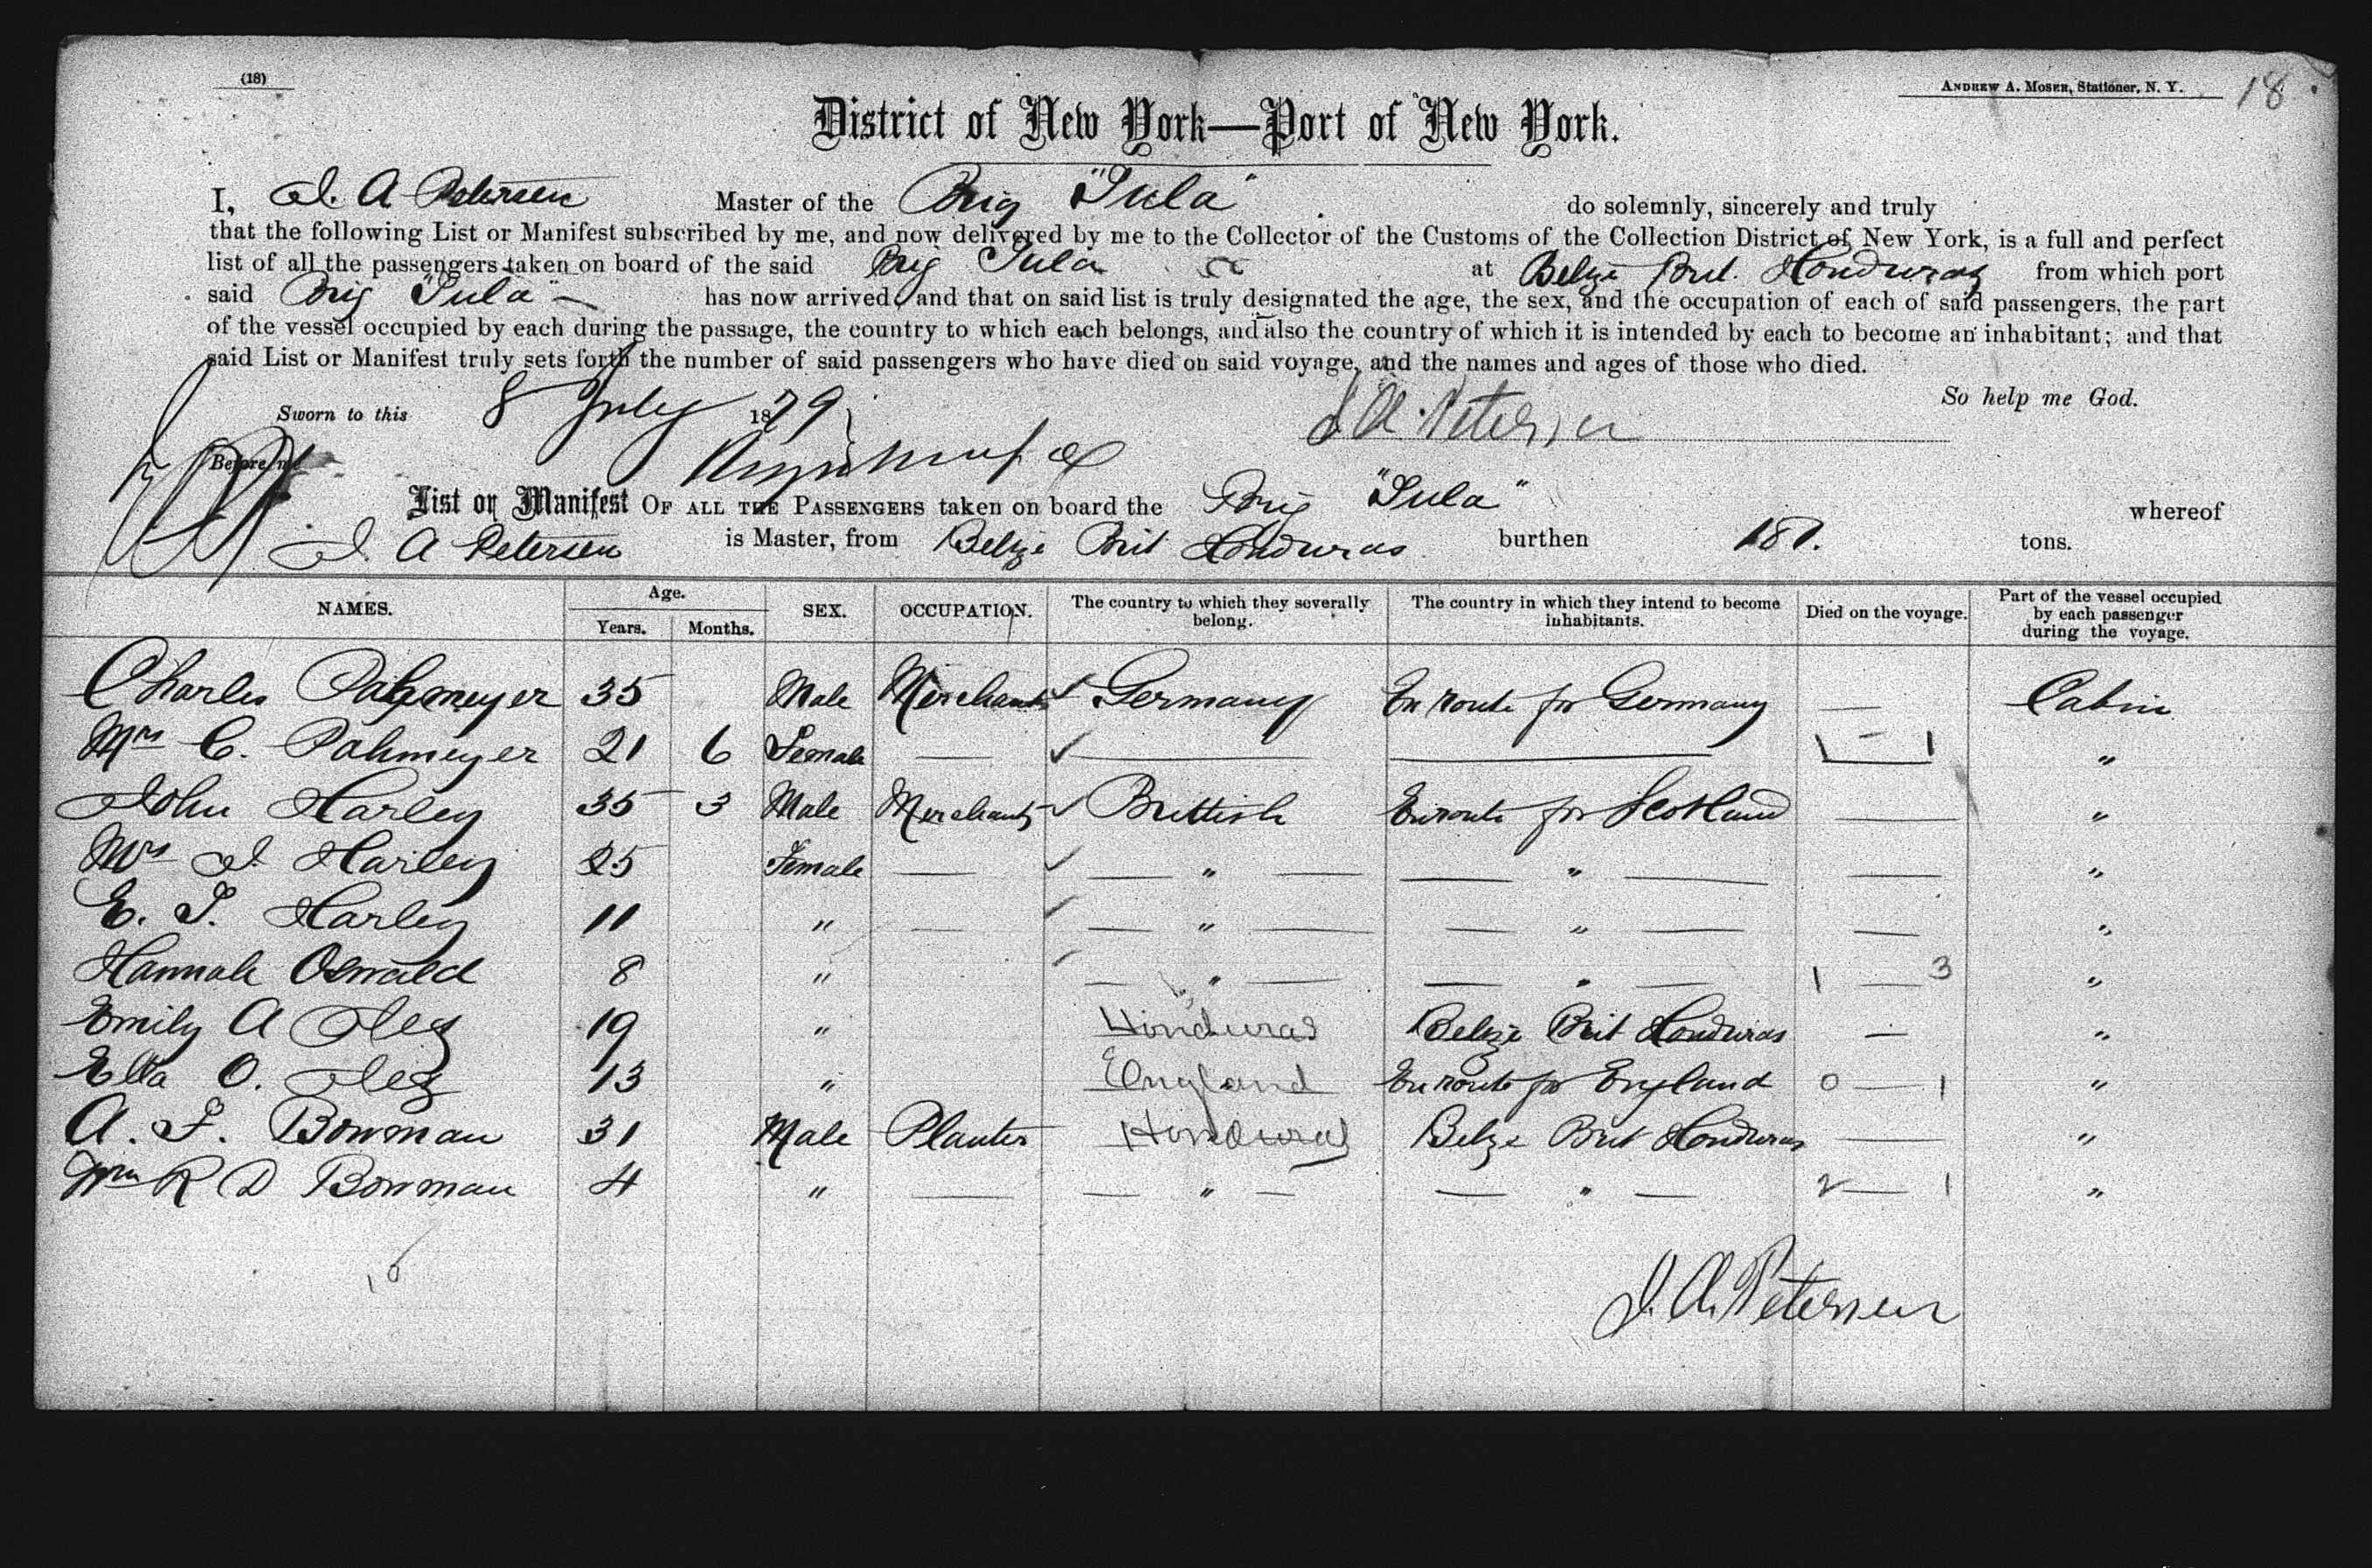 (18)
Andrew A. Moser, Stationer, N. Y.
18
District of New York—Port of New York.
I, J. A Petersen Master of the Brig "Tula" do solemnly, sincerely and truly
that the following List or Manifest subscribed by me, and now delivered by me to the Collector of the Customs of the Collection District of New York, is a full and perfect
list of all the passengers taken on board of the said Brig Tula at Belize Brit. Honduras from which port
said Brig "Tula" has now arrived, and that on said list is truly designated the age, the sex, and the occupation of each of said passengers, the part
of the vessel occupied by each during the passage, the country to which each belongs, and also the country of which it is intended by each to become an inhabitant; and that
said List or Manifest truly sets forth the number of said passengers who have died on said voyage, and the names and ages of those who died.
So help me God.
Sworn to this 8 July 1879
J A Petersen
Before me
List or Manifest OF ALL THE PASSENGERS taken on board the Brig "Tula" whereof
J. A Petersen is Master, from Belize Brit Honduras burthen 181. tons.
NAMES. Age. Years. Months. SEX. OCCUPATION. The country to which they severally belong. The country in which they intend to become inhabitants. Died on the voyage. Part of the vessel occupied by each passenger during the voyage.
Charles Pahmeyer 35 Male Merchant ✓ Germany En route for Germany — Cabin
Mrs C. Pahmeyer 21 6 Female — ✓ — — 1 - 1 "
John Harley 35 3 Male Merchant ✓ Brittish En route for Scotland — "
Mrs J Harley 25 Female — ✓ — " — — " — — "
E. T. Harley 11 " — ✓ — " — — " — — "
Hannah Oswald 8 " — " — — " — 1 — 3 "
Emily A 19 " Honduras Belize Brit Honduras — "
Etta O. 13 " England En route for England 0 — 1 "
A. F. Bowman 31 Male Planter Honduras Belize Brit Honduras — "
Wm R D Bowman 4 " — — " — — " — 2 — 1 "
10
J. A. Petersen